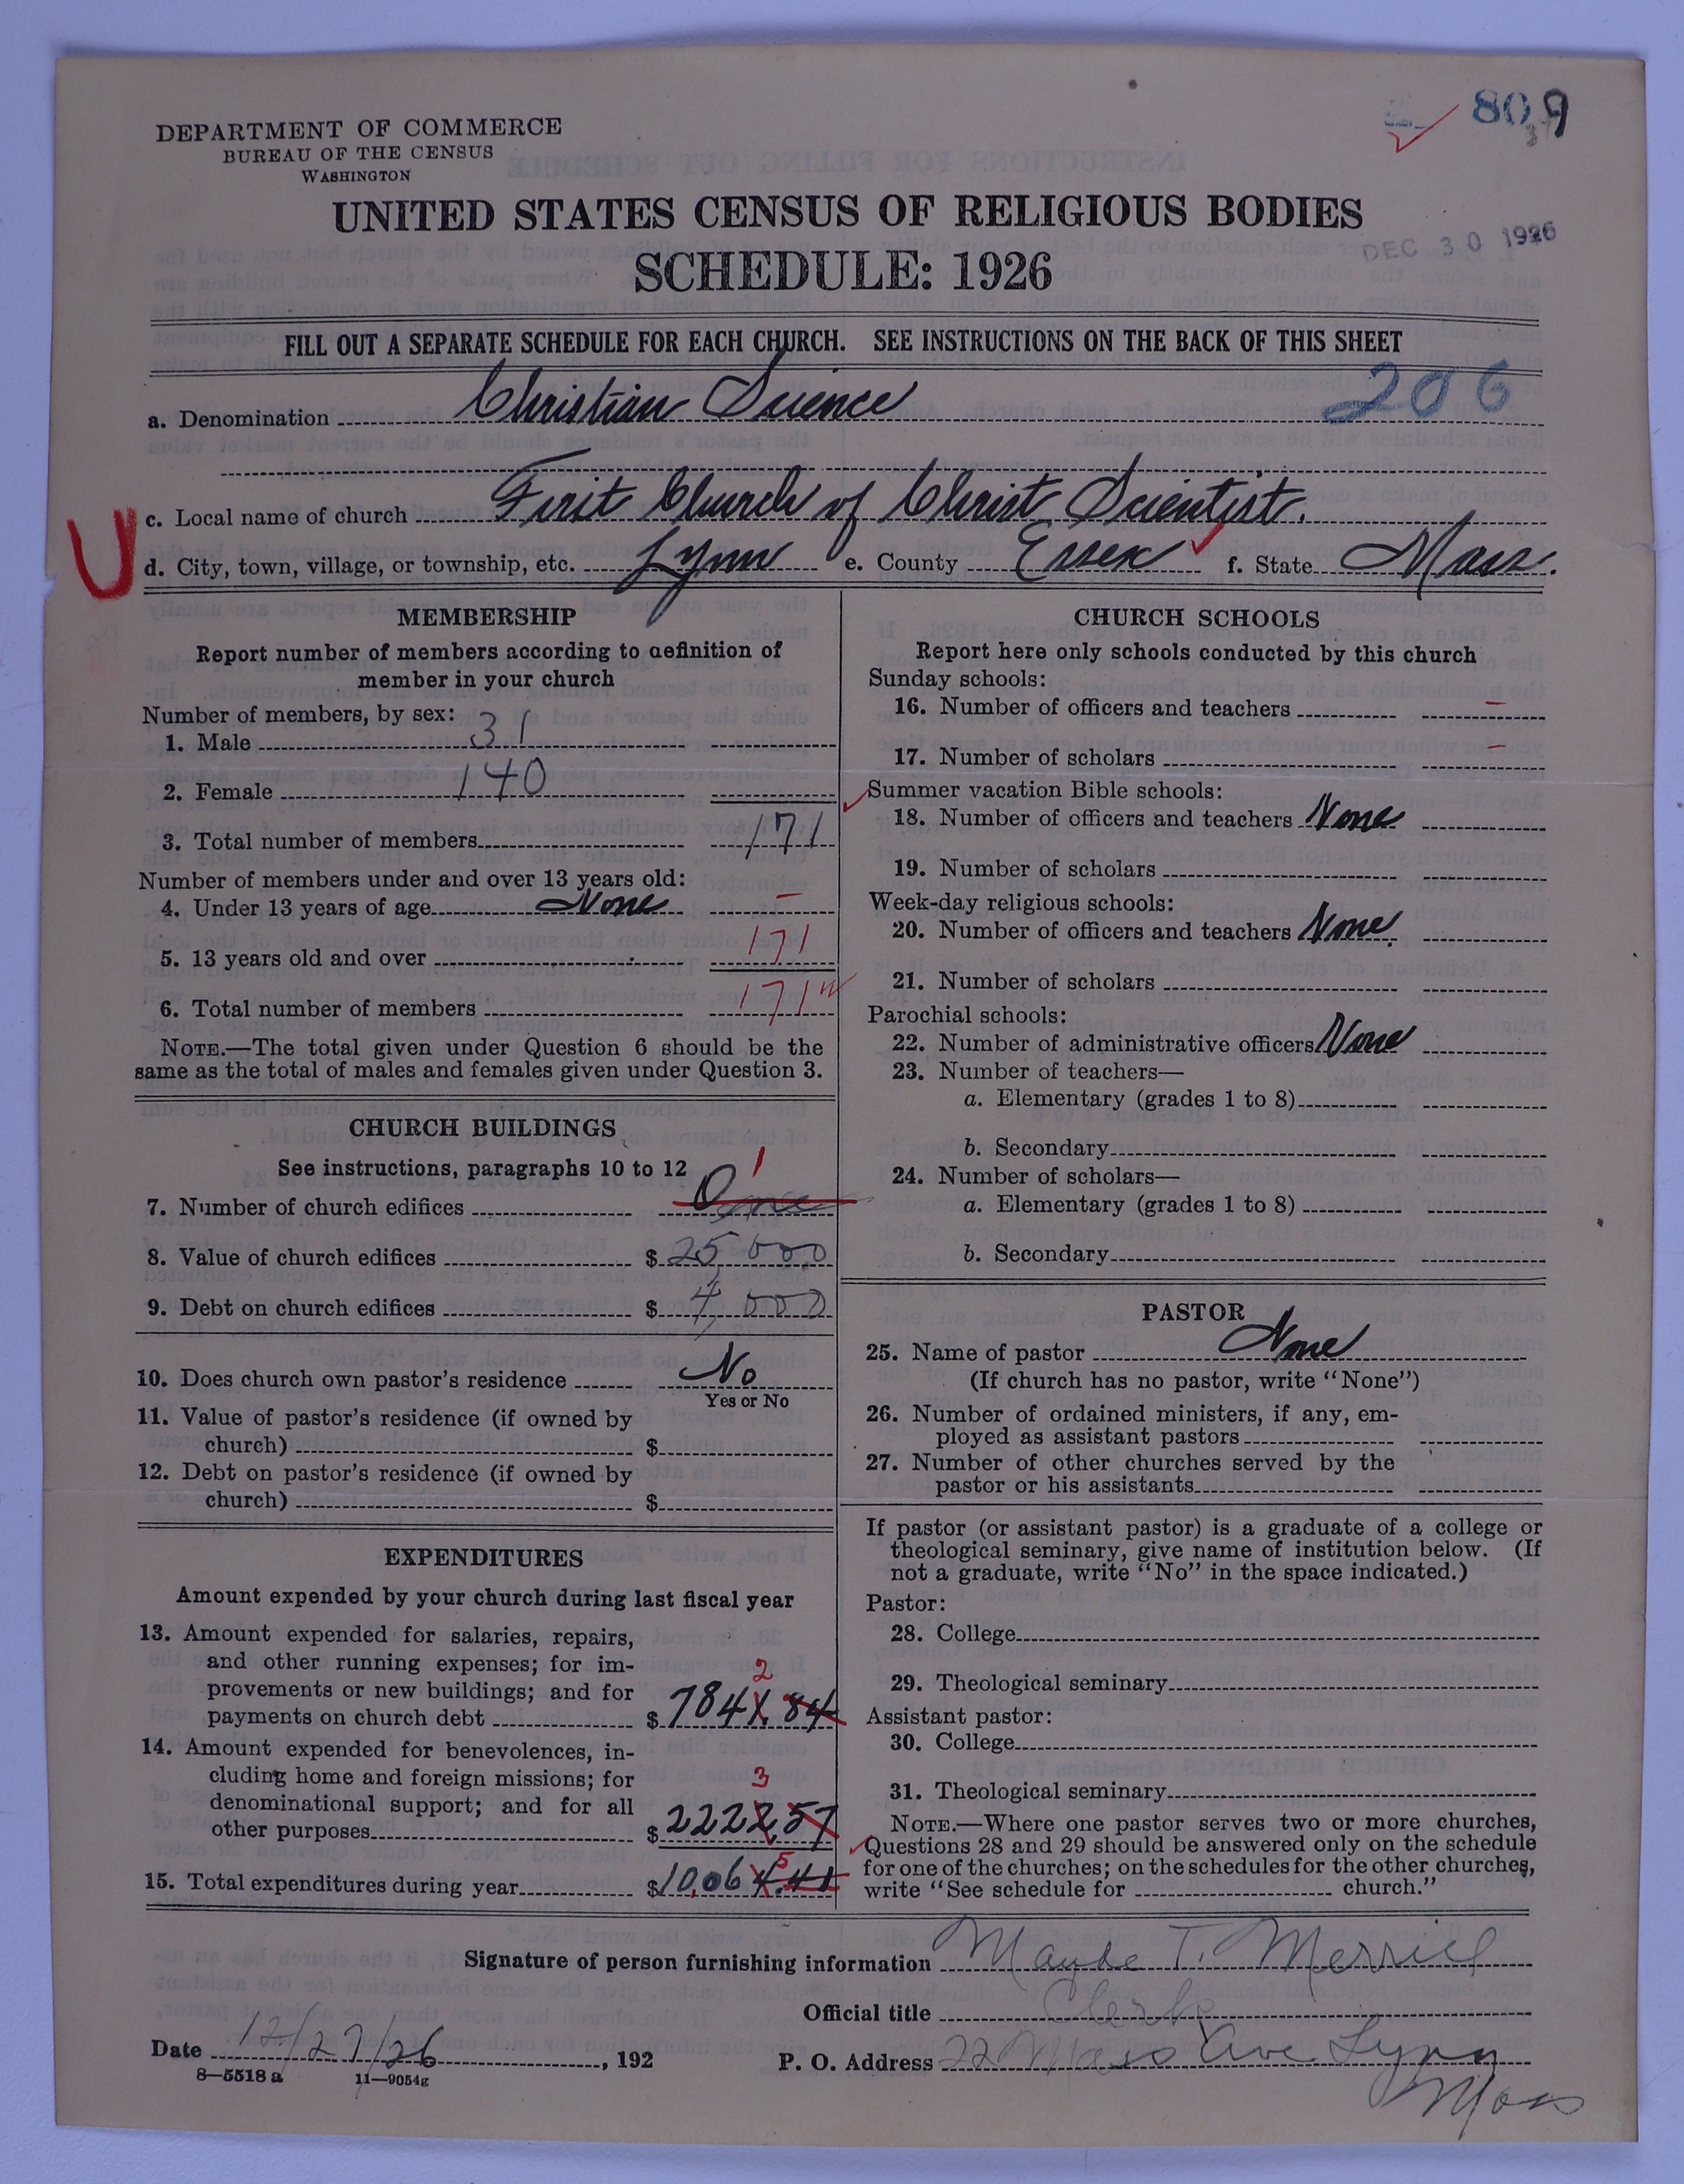 809
DEPARTMENT OF COMMERCE
BUREAU OF THE CENSUS
WASHINGTON
UNITED STATES CENSUS OF RELIGIOUS BODIES
DEC 30 1926
SCHEDULE: 1926
FILL OUT A SEPARATE SCHEDULE FOR EACH CHURCH. SEE INSTRUCTIONS ON THE BACK OF THIS SHEET
a. Denomination Christian Science 206
c. Local name of church First Church of Christ, Scientist.
U
d. City, town, village, or township, etc. Lynn e. County Essex f. State Mass.
MEMBERSHIP
Report number of members according to definition of
member in your church
Number of members, by sex:
1. Male 31
2. Female 140
3. Total number of members 171
Number of members under and over 13 years old:
4. Under 13 years of age None –
5. 13 years old and over 171
6. Total number of members 171
NOTE.—The total given under Question 6 should be the
same as the total of males and females given under Question 3.
CHURCH BUILDINGS
See instructions, paragraphs 10 to 12
7. Number of church edifices One 1
8. Value of church edifices $ 25,000
9. Debt on church edifices $ 4,000
10. Does church own pastor's residence No
Yes or No
11. Value of pastor's residence (if owned by
church) $
12. Debt on pastor's residence (if owned by
church) $
EXPENDITURES
Amount expended by your church during last fiscal year
13. Amount expended for salaries, repairs,
and other running expenses; for im-
provements or new buildings; and for 2
payments on church debt $ 7841.84
14. Amount expended for benevolences, in-
cluding home and foreign missions; for 3
denominational support; and for all
other purposes $ 2222.57
15. Total expenditures during year $ 10,064.41 5
CHURCH SCHOOLS
Report here only schools conducted by this church
Sunday schools:
16. Number of officers and teachers –
17. Number of scholars –
Summer vacation Bible schools:
18. Number of officers and teachers None
19. Number of scholars
Week-day religious schools:
20. Number of officers and teachers None.
21. Number of scholars
Parochial schools:
22. Number of administrative officers None
23. Number of teachers—
a. Elementary (grades 1 to 8)
b. Secondary
24. Number of scholars—
a. Elementary (grades 1 to 8)
b. Secondary
PASTOR
25. Name of pastor None
(If church has no pastor, write "None")
26. Number of ordained ministers, if any, em-
ployed as assistant pastors
27. Number of other churches served by the
pastor or his assistants
If pastor (or assistant pastor) is a graduate of a college or
theological seminary, give name of institution below. (If
not a graduate, write "No" in the space indicated.)
Pastor:
28. College
29. Theological seminary
Assistant pastor:
30. College
31. Theological seminary
NOTE.—Where one pastor serves two or more churches,
Questions 28 and 29 should be answered only on the schedule
for one of the churches; on the schedules for the other churches,
write "See schedule for church."
Signature of person furnishing information Maybe T. Merrill
Official title Clerk
Date 12/27/26, 192
P. O. Address 22 Mass Ave Lynn
Mass
8—5518 a 11—9054g